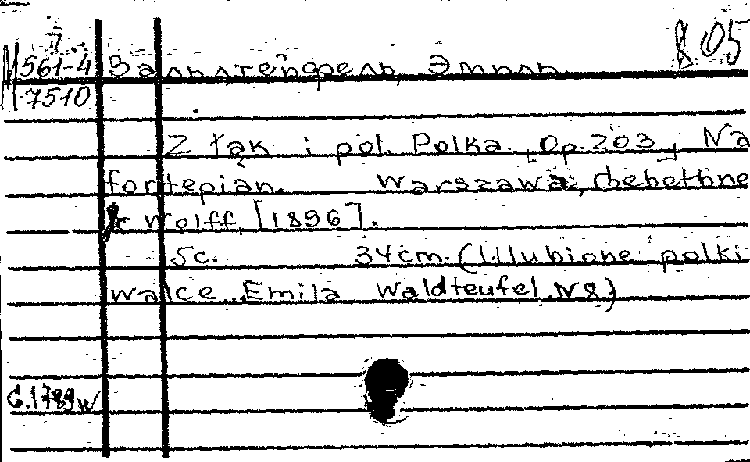 7
М 561-4 Вальдтейфель, Эмиль 8.05
М 7510
Z łąk i pól. Polka, Op. 203, Na
fortepian. Warszawa, Gebethne
r Wolff, [1896].
5c. 34cm. (Ulubione polki
walce Emila Waldteufel. N8)
G.1789w